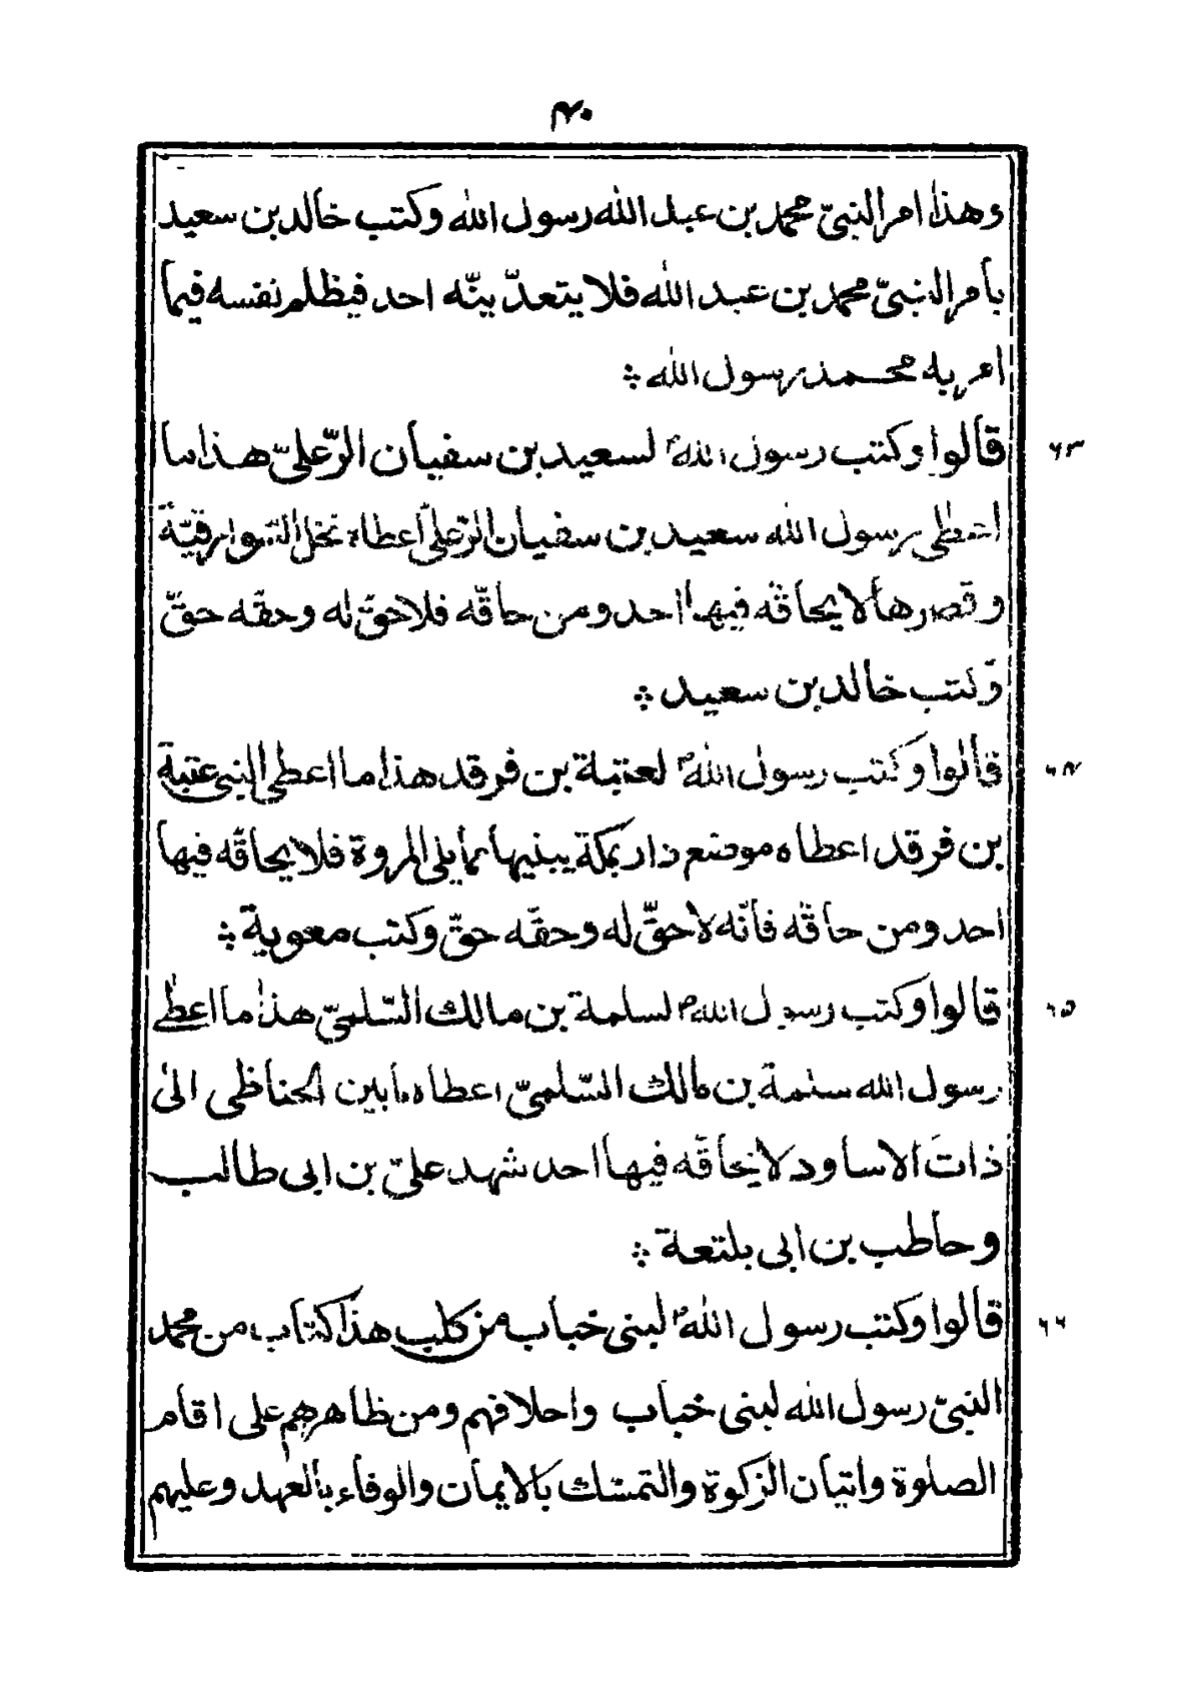 ۴۰
وهذا امر النبىّ محمد بن عبد الله رسول الله وكتب خالد بن سعيد
بأمر النبىّ محمد بن عبد الله فلا يتعدّينّه احد فيظلم نفسه فيما
امر به محمد رسول الله ؞
۶۳ قالوا وكتب رسول اللهؐ لسعيد بن سفيان الرّعلىّ هذا ما
اعطى رسول الله سعيد بن سفيان الرّعلىّ اعطاه نخل السّوارقيّة
وقصرها لا يحاقّه فيها احد ومن حاقّه فلا حقّ له وحقّه حقّ
وكتب خالد بن سعيد ؞
۶۴ قالوا وكتب رسول اللهؐ لعتبة بن فرقد هذا ما اعطى النبى عتبة
بن فرقد اعطاه موضع دار بمكة يبنيها ممّا يلى المروة فلا يحاقّه فيها
احد ومن حاقّه فانّه لا حقّ له وحقّه حقّ وكتب معوية ؞
۶۵ قالوا وكتب رسول اللهؐ لسلمة بن مالك السّلمىّ هذا ما اعطى
رسول الله سلمة بن مالك السّلمىّ اعطاه ما بين الحناظى الى
ذات الاساود لا يحاقّه فيها احد شهد علىّ بن ابى طالب
وحاطب بن ابى بلتعة ؞
۶۶ قالوا وكتب رسول اللهؐ لبنى خباب من كلب هذا كتاب من محمد
النبىّ رسول الله لبنى خباب واحلافهم ومن ظاهرهم على اقام
الصلوة واتيان الزكوة والتمسّك بالايمان والوفاء بالعهد وعليهم